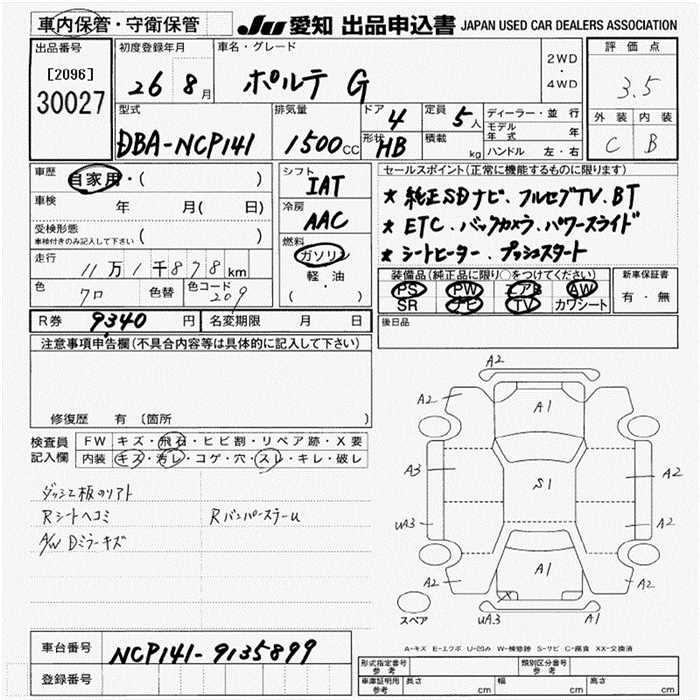 車内保管・守衛保管 JU 愛知 出品申込書 JAPAN USED CAR DEALERS ASSOCIATION
出品番号 初度登録年月 車名・グレード 評価点
[2096] 26 8月 ポルテ G 2WD・4WD 3.5
30027
型式 排気量 ドア 4 定員 5人 ディーラー・並行 外装 内装
DBA-NCP141 1500CC 形状 HB 積載 kg モデル年式 年 C B
ハンドル 左・右
車歴 自家用・( ) シフト IAT セールスポイント(正常に機能するものに限ります)
車検 年 月( 日) 冷房 AAC ★純正SDナビ・フルセグTV・BT
受検形態 ( ) ★ETC・バックカメラ・パワースライド
車検付きのみ記入して下さい 燃料 ガソリン ★シートヒーター・プッシュスタート
走行 11万1千878km 軽・油 装備品(純正品に限り○をつけてください) 新車保証書
色 クロ 色替 色コード 209 ( ・ ) PS PW エアB AW 有・無
SR ナビ TV カワシート
R券 9340 円 名変期限 月 日 後日品
注意事項申告欄(不具合内容等は具体的に記入して下さい)
修復歴 有 〔箇所
検査員 FW キズ・飛石・ヒビ割・リペア跡・X要
記入欄 内装 キズ・汚レ・コゲ・穴・スレ・キレ・破レ
Rシートヘコミ
A/W Dミラーキズ
A2
A2 A1 A2
A3 S1 A2
uA3 A2
A2 A1 A2
スペア uA3 A1
A-キズ E-エクボ U-凹み W-補修跡 S-サビ C-腐食 XX-交換済
車台番号 NCP141-9135899
登録番号
形式指定番号 参考 類別区分番号 参考
車庫証明用 参考 長さ cm 幅 cm 高さ cm